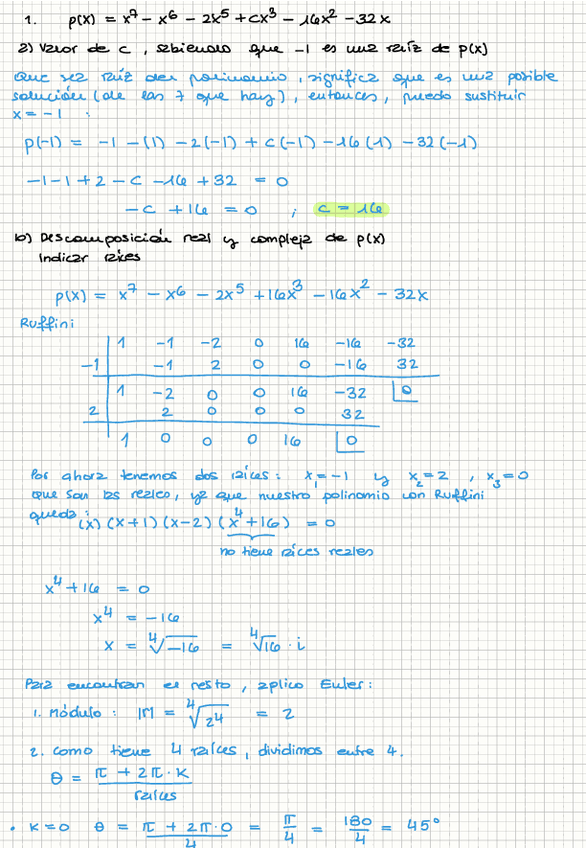 1. p(x) = x⁷ - x⁶ - 2x⁵ + cx³ - 16x² - 32x
a) Valor de c, sabiendo que -1 es una raíz de p(x)
Que sea raíz del polinomio, significa que es una posible
solución (de las 7 que hay), entonces, puedo sustituir
x = -1 :
p(-1) = -1 - (1) - 2(-1) + c(-1) - 16(1) - 32(-1)
-1 - 1 + 2 - c - 16 + 32 = 0
-c + 16 = 0 ; c = 16
b) Descomposición real y compleja de p(x)
Indicar raíces
p(x) = x⁷ - x⁶ - 2x⁵ + 16x³ - 16x² - 32x
Ruffini
1 -1 -2 0 16 -16 -32
-1 -1 2 0 0 -16 32
1 -2 0 0 16 -32 0
2 2 0 0 0 32
1 0 0 0 16 0
Por ahora tenemos dos raíces: x₁ = -1 y x₂ = 2 , x₃ = 0
que son las reales, ya que nuestro polinomio con Ruffini
queda: (x) (x+1) (x-2) (x⁴+16) = 0
no tiene raíces reales
x⁴ + 16 = 0
x⁴ = -16
x = ⁴√-16 = ⁴√16 · i
Para encontrar el resto, aplico Euler:
1. Módulo : |M = ⁴√2⁴ = 2
2. Como tiene 4 raíces, dividimos entre 4.
θ = π + 2π · k / raíces
• k=0 θ = π + 2π·0 / 4 = π/4 = 180/4 = 45°